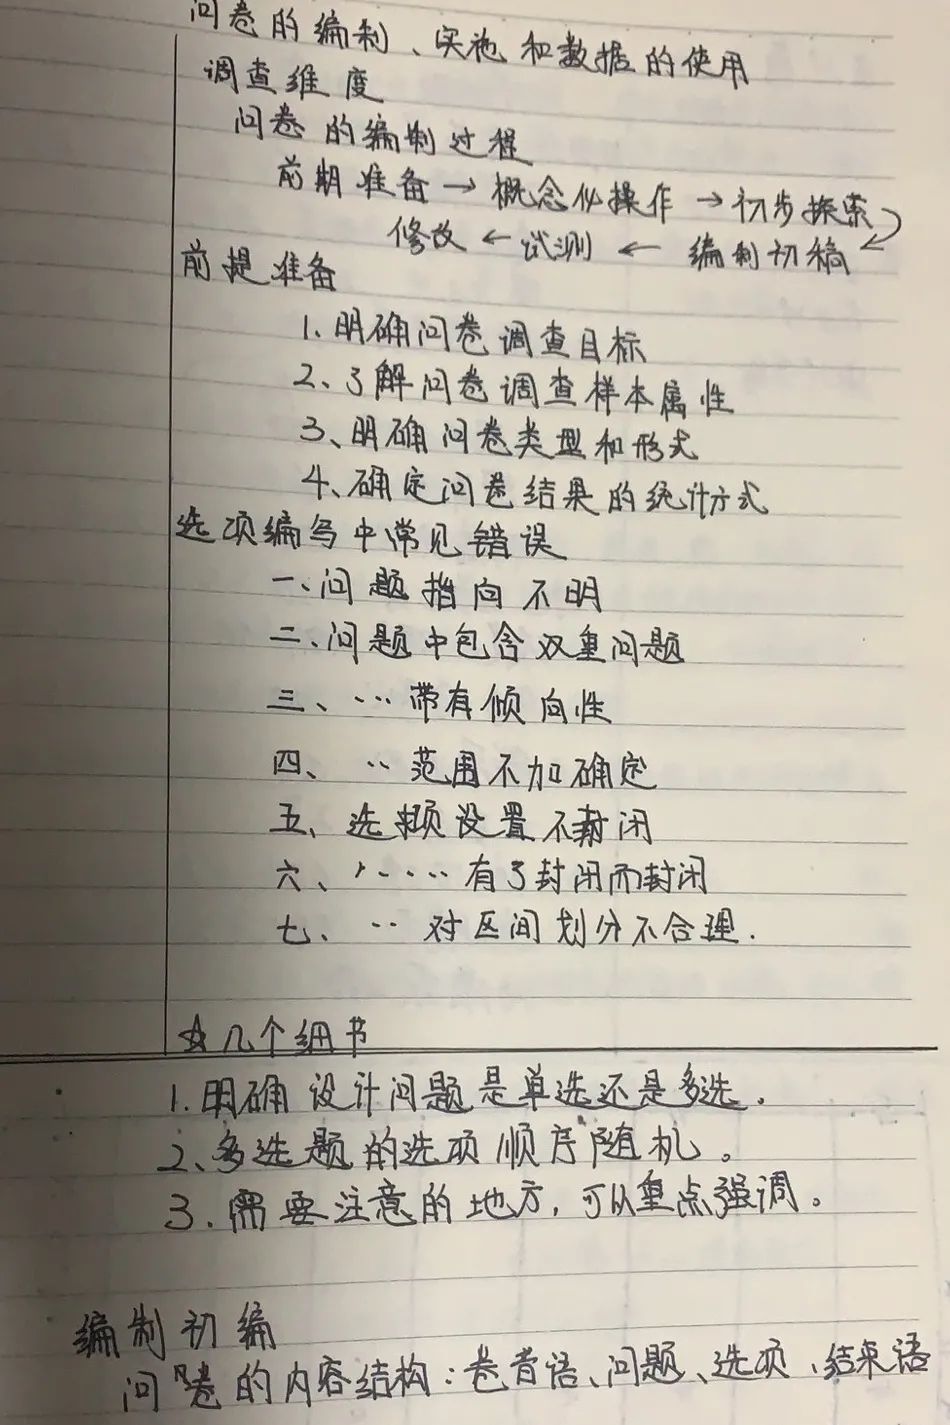 问卷的编制、实施和数据的使用
调查维度
问卷的编制过程
前期准备→概念化操作→初步探索
修改←试测←编制初稿
前提准备
1.明确问卷调查目标
2、了解问卷调查样本属性
3、明确问卷类型和形式
4、确定问卷结果的统计方式
选项编写中常见错误
一、问题指向不明
二、问题中包含双重问题
三、…带有倾向性
四、‥范围不加确定
五、选项设置不封闭
六、‥‥‥有了封闭而封闭
七、‥对区间划分不合理.
☆几个细节
1.明确设计问题是单选还是多选。
2、多选题的选项顺序随机。
3.需要注意的地方,可以重点强调。
编制初编
问卷的内容结构:卷首语、问题、选项、结束语